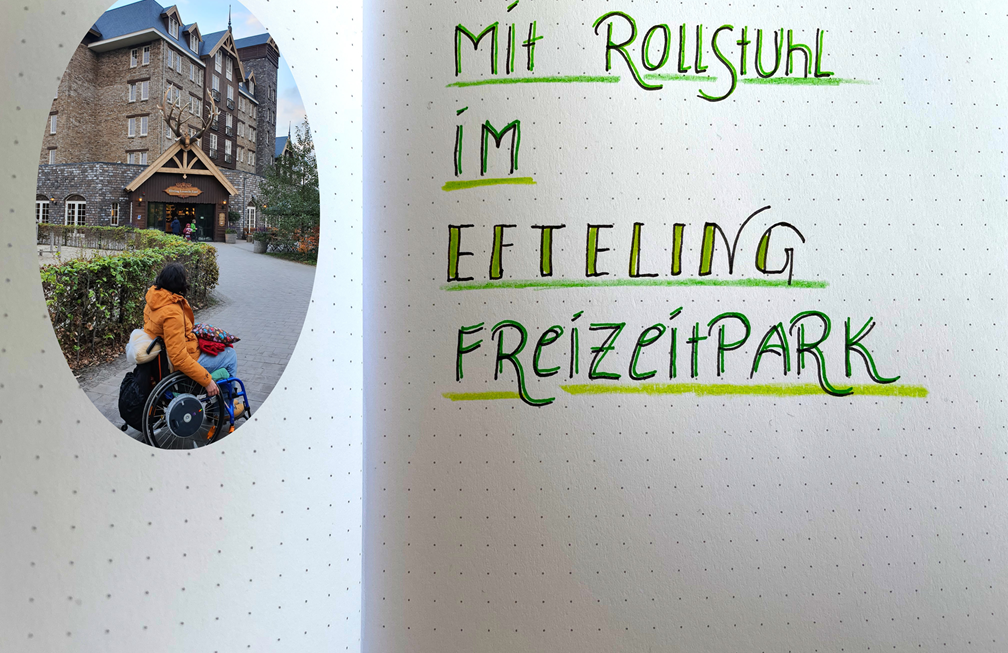 Mit Rollstuhl
im
EFTELING
Freizeitpark